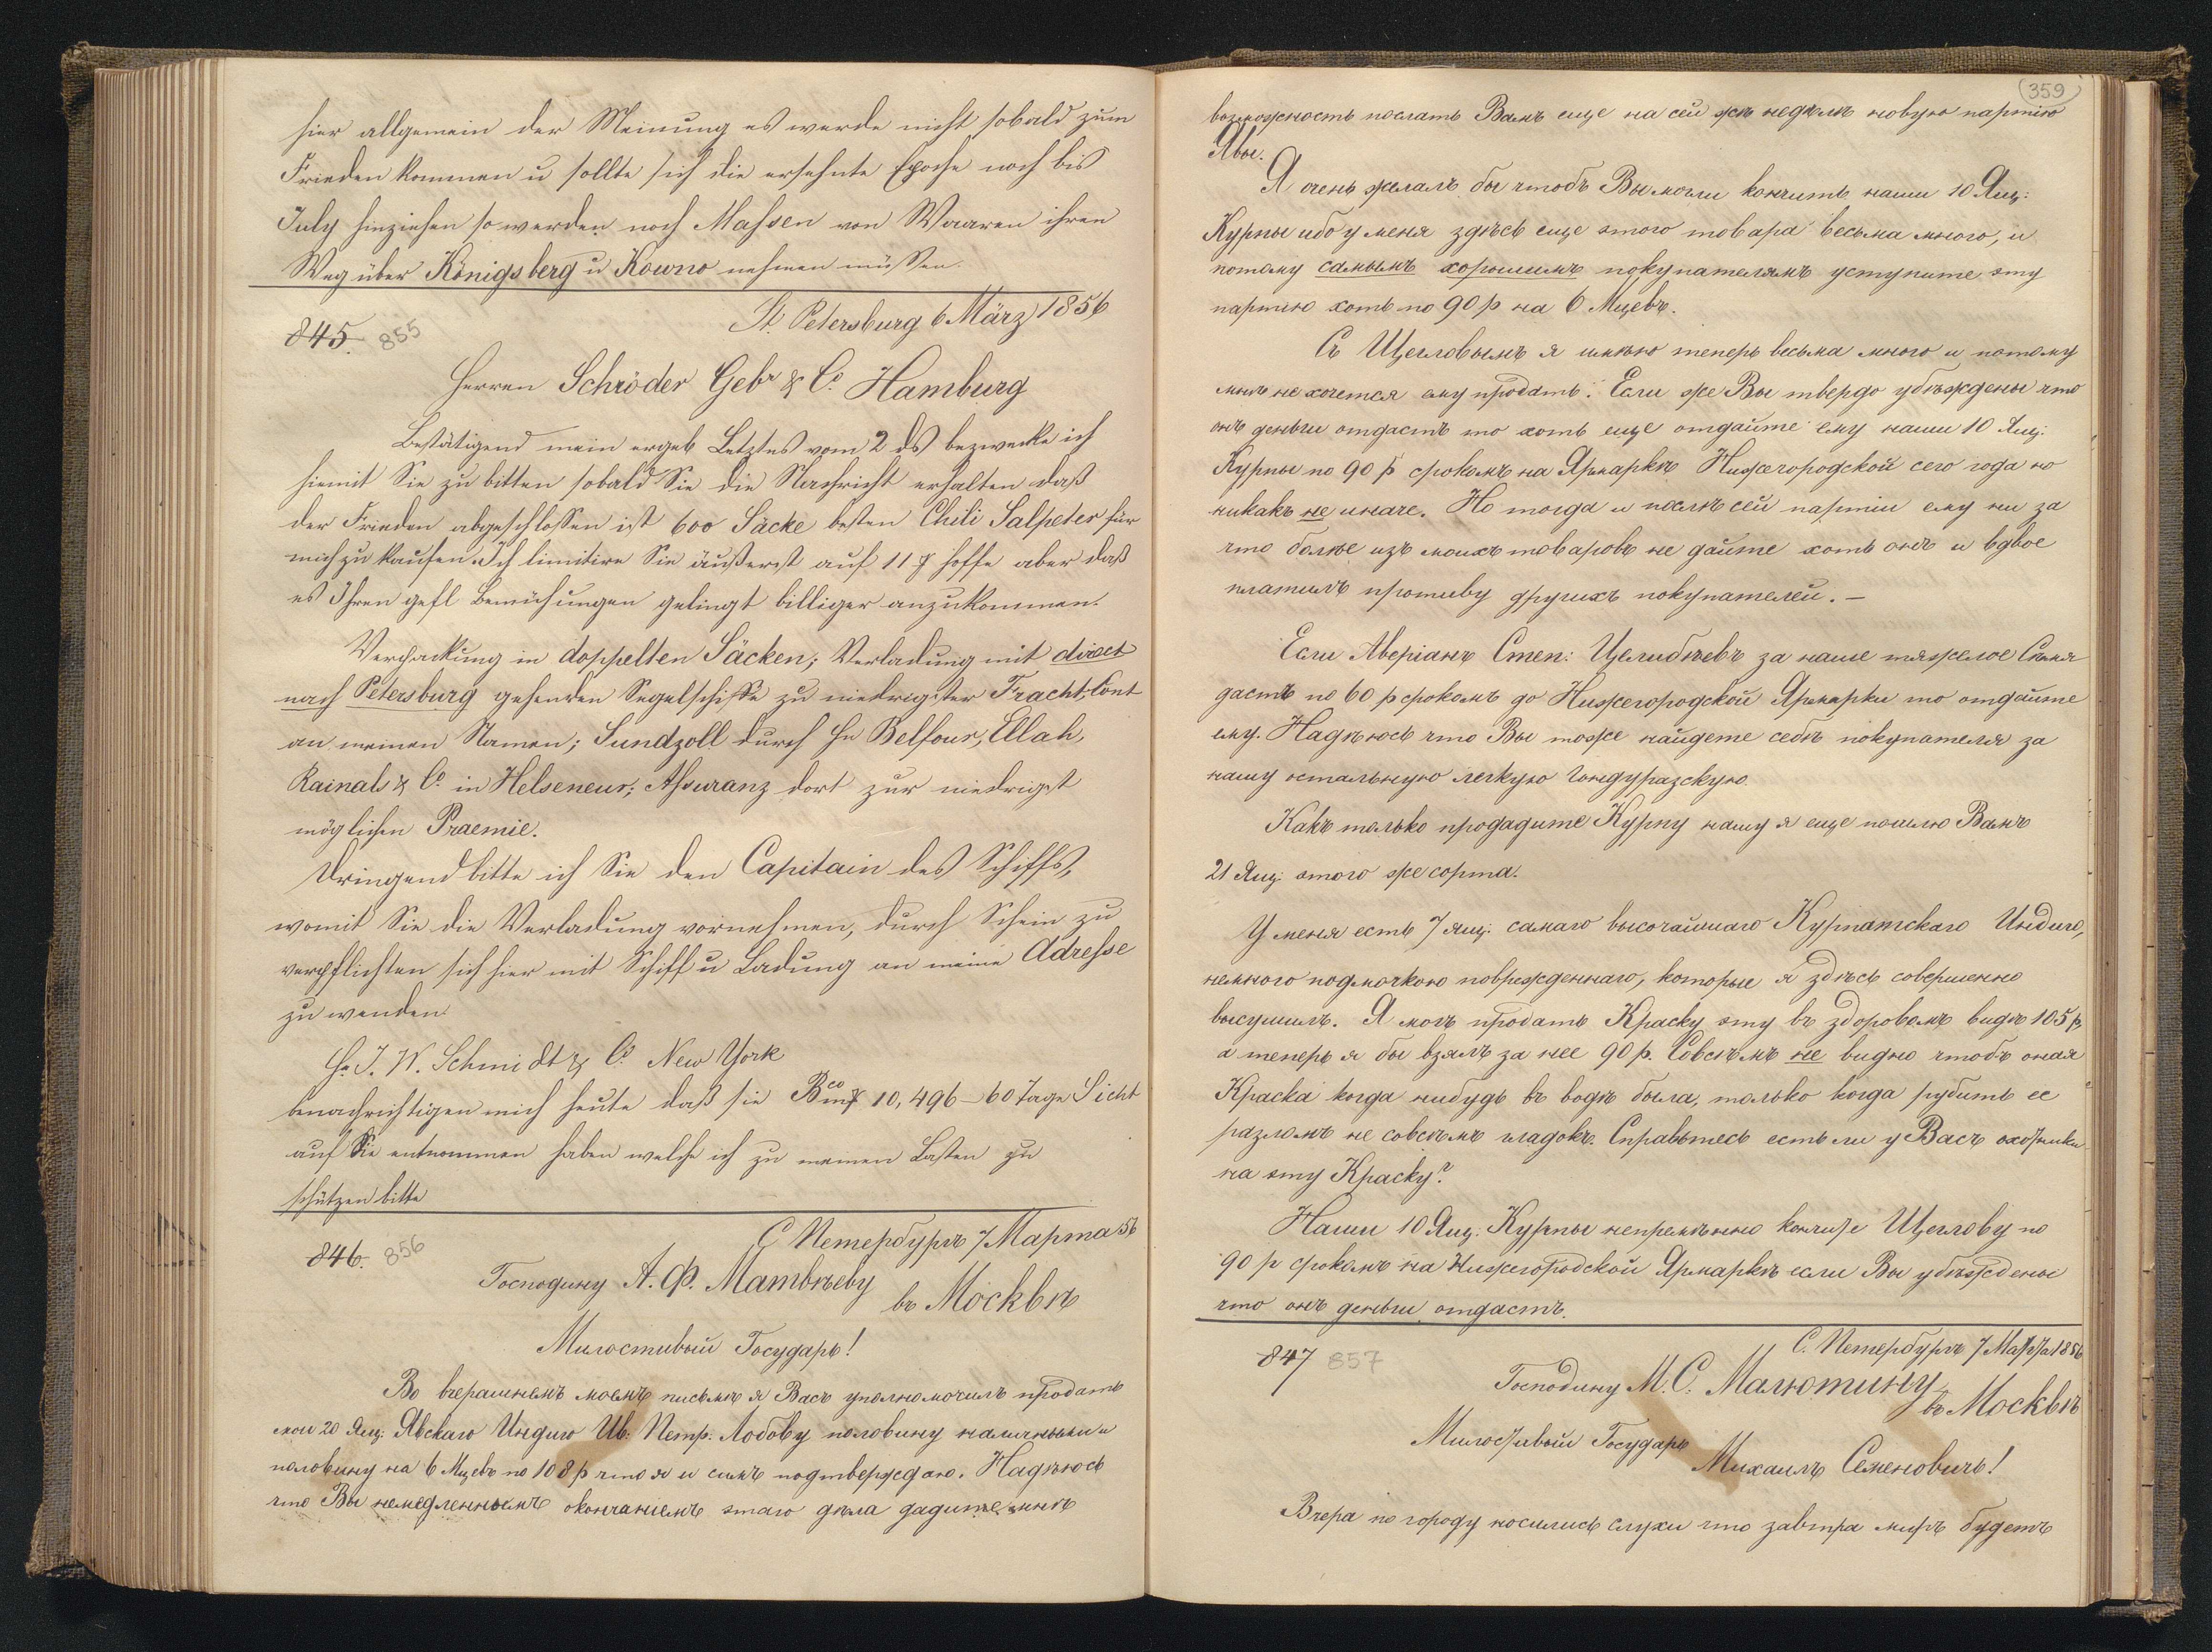 hier allgemein der Meinung es werde nicht sobald zum
Frieden kommen u sollte sich die ersehnte Epoche noch bis
July hinziehen so werden noch Massen von Waaren ihren
Weg über Königsberg u Kowno nehmen müssen.
St. Petersburg 6 März 1856
845. 855
Herren Schröder Gebr & Co. Hamburg
Bestätigend mein ergeb Letztes vom 2 ds bezwecke ich
hiemit Sie zu bitten sobald Sie die Nachricht erhalten daß
der Frieden abgeschlossen ist 600 Säcke besten Chili Salpeter für
mich zu kaufen. Ich limitire Sie äußerst auf 11 hoffe aber daß
es Ihren gefl Bemühungen gelingt billiger anzukommen.
Verpackung in doppelten Säcken; Verladung mit direct
nach Petersburg gehenden Segelschiffe zu niedrigster Fracht; Cont
an meinen Namen; Sundzoll durch Hn Belfour, Ellah,
Rainals & Co. in Helseneur; Assuranz dort zur niedrigst
möglichen Praemie.
Dringend bitte ich Sie den Capitain des Schiffs,
womit Sie die Verladung vornehmen, durch Schein zu
verpflichten sich hier mit Schiff u Ladung an meine Adresse
zu wenden.
Hn J. W. Schmidt & Co. New York
benachrichtigen mich heute daß sie Bco 10,496 – 60 Tage Sicht
auf Sie entnommen haben welche ich zu meinen Lasten zu
schützen bitte
С Петербургъ 7 Марта 56
846. 856
Господину А. Ф. Матвѣеву
въ Москвѣ
Милостивый Государь!
Во вчерашнемъ моемъ письмѣ я Васъ уполномочилъ продать
мои 20 Ящ. Явскаго Индиго Ив: Петр. Лобову половину наличными и
половину на 6 Мцевъ по 108 р что я и симъ подтверждаю. Надѣюсь
что Вы немедленнымъ окончаніемъ этаго дѣла дадите мнѣ
359
возможность послать Вамъ еще на сей же недѣлѣ новую партію
Явы.
Я очень желалъ бы чтобъ Вы могли кончить наши 10 Ящ:
Курпы ибо у меня здѣсь еще этого товара весьма много, и
потому самымъ хорошимъ покупателямъ уступите эту
партію хоть по 90 р на 6 Мцевъ.
Съ Щегловымъ я имѣю теперь весьма много и потому
мнѣ не хочется ему продать. Если же Вы твердо убѣждены что
онъ деньги отдастъ то хоть еще отдайте ему наши 10 Ящ.
Курпы по 90 р срокомъ на Ярмаркѣ Нижегородской сего года но
никакъ не иначе. Но тогда и послѣ сей партіи ему ни за
что болѣе изъ моихъ товаровъ не дайте хоть онъ и вдвое
платилъ противу другихъ покупателей. –
Если Аверіанъ Степ: Целибѣевъ за наше тяжелое
дастъ по 60 р срокомъ до Нижегородской Ярмарки то отдайте
ему. Надѣюсь что Вы тоже найдете себѣ покупателя за
нашу остальную легкую Гондуразскую.
Какъ только продадите Курпу нашу я еще пошлю Вамъ
21 Ящ. этого же сорта.
У меня есть 7 ящ. самаго высочайшаго Курпатскаго Индиго,
немного подмочкою поврежденнаго, которые я здѣсь совершенно
высушилъ. Я могъ продать Краску эту въ здоровомъ видѣ 105 р.
а теперь я бы взялъ за нее 90 р. Совсѣмъ не видно чтобъ оная
Краска когда нибудь въ водѣ была, только когда рубить ее
разломъ не совсѣмъ гладокъ. Справьтесь есть ли у Васъ охотники
на эту Краску?
Наши 10 Ящ. Курпы непремѣнно кончите Щеглову по
90 р срокомъ на Нижегородской Ярмаркѣ если Вы убѣждены
что онъ деньги отдастъ.
С. Петербургъ 7 Марта 1856
847 857
Господину М. С. Малютину
въ Москвѣ
Милостивый Государь
Михаилъ Семеновичъ!
Вчера по городу носились слухи что завтра миръ будетъ